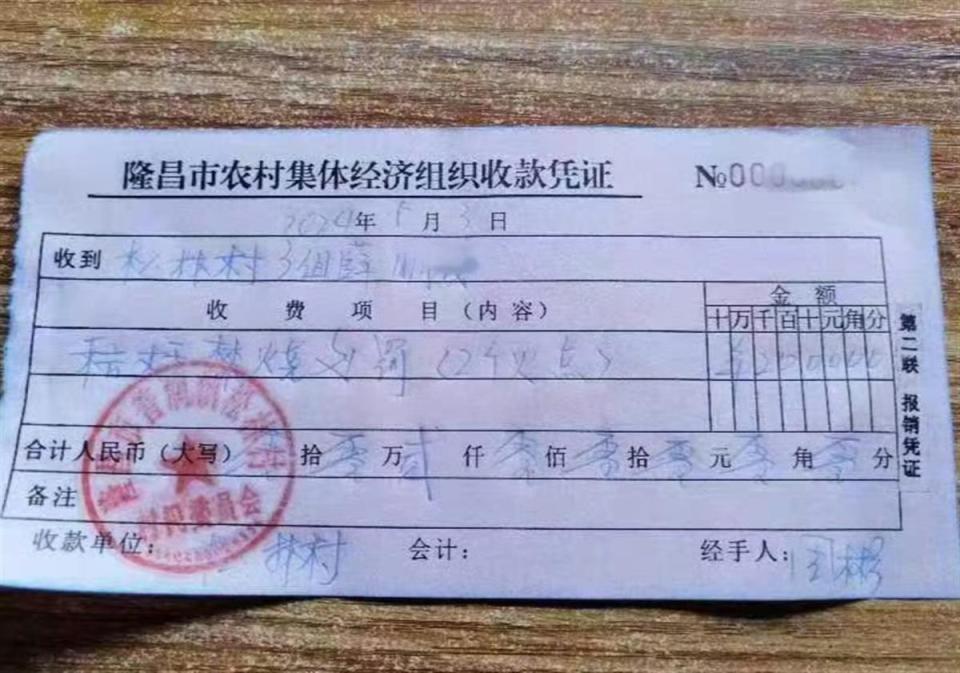 隆昌市农村集体经济组织收款凭证 №000
2024年5月3日
收到 松林村3组薛
收费项目(内容) 金额
十万千百十元角分
秸秆焚烧处罚(2个火点) ¥200000
合计人民币(大写) 零拾零万贰仟零佰零拾零元零角零分
备注
收款单位: 林村 会计: 经手人: 周彬
第二联 报销凭证
村民委员会